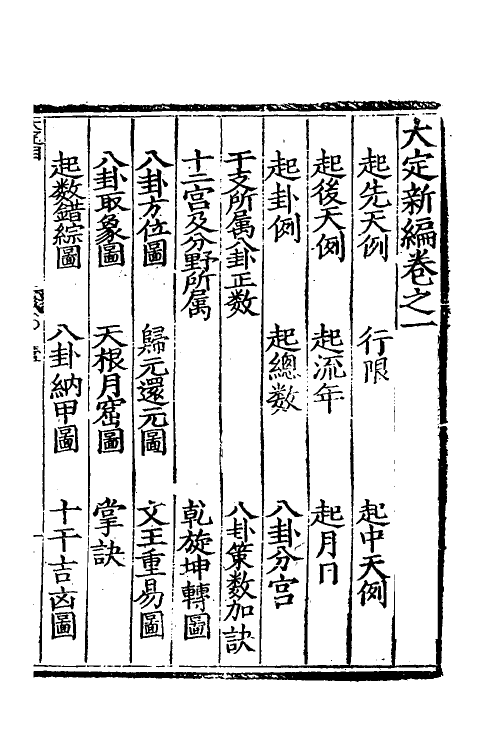 大定新編卷之一
起先天例 行限 起中天例
起後天例 起流年 起月日
起卦例 起總数 八卦分宫
干支所属八卦正数 八卦策数加訣
十二宫及分野所属 乹旋坤轉圖
八卦方位圖 歸元還元圖 文王重易圖
八卦取象圖 天根月窟圖 掌訣
起数錯綜圖 八卦納甲圖 十干吉凶圖